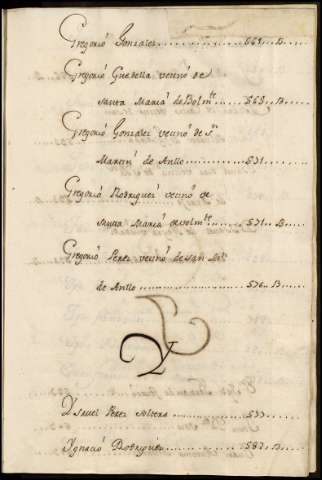 Gregorio Gonzalez ........ 561 .. B ....
Gregorio Guedella vecino de
Santa Maria de Bolm.te .... 563 .. B ....
Gregorio Gonzalez vecino de S.n
Martin de Anllo .......... 571 ....
Gregorio Rodriguez vecino de
Santa Maria de volm.te .... 571 .. B ....
Gregorio Perez vecino de San M.n
de Anllo .......... 576 .. B ....
Y
Ysavel Perez soltera ........ 533 ....
Ygnacio Rodriguez ........ 587 .. B ....